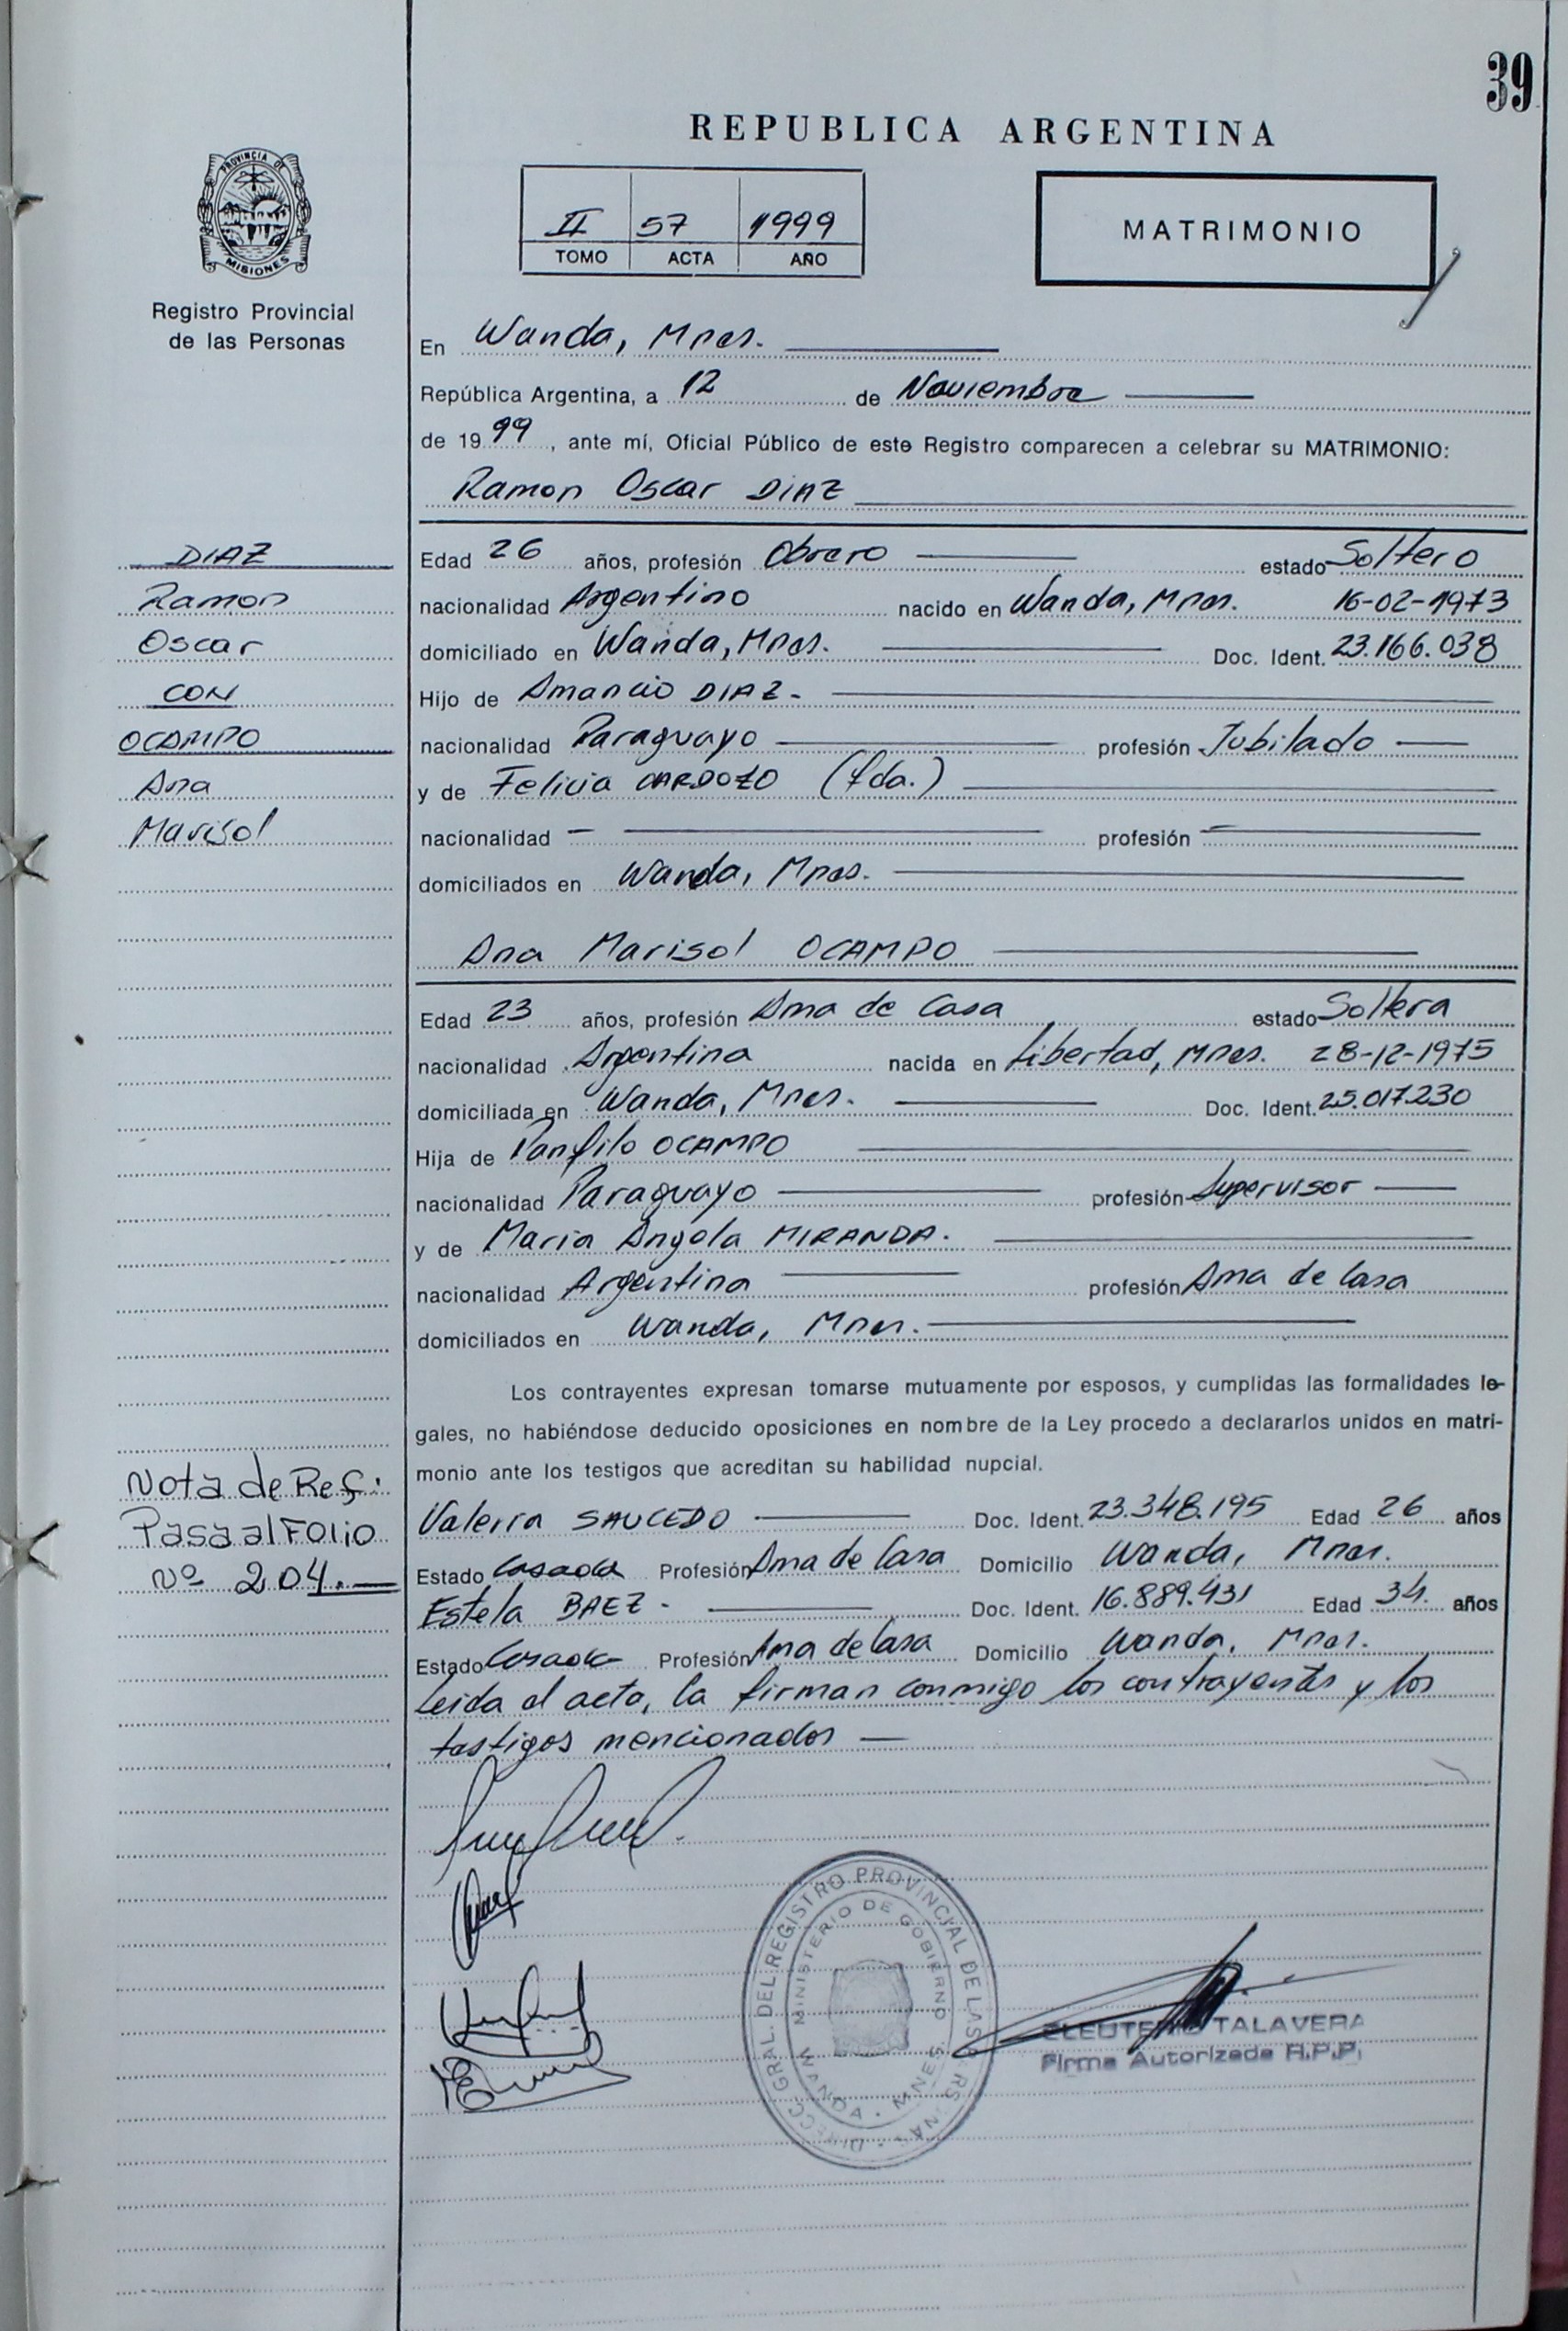 39
REPUBLICA ARGENTINA
PROVINCIA DE
MISIONES
Registro Provincial
de las Personas
II 57 1999
TOMO ACTA AÑO
MATRIMONIO
En Wanda, Mnes.
República Argentina, a 12 de Noviembre
de 19 99, ante mí, Oficial Público de este Registro comparecen a celebrar su MATRIMONIO:
Ramon Oscar DIAZ
DIAZ
Ramon
Oscar
CON
OCAMPO
Ana
Marisol
Edad 26 años, profesión Obrero estado Soltero
nacionalidad Argentino nacido en Wanda, Mnes. 16-02-1973
domiciliado en Wanda, Mnes. Doc. Ident. 23.166.038
Hijo de Amancio DIAZ.
nacionalidad Paraguayo profesión Jubilado
y de Felicia CARDOZO (fda.)
nacionalidad — profesión —
domiciliados en Wanda, Mnes.
Ana Marisol OCAMPO
Edad 23 años, profesión Ama de Casa estado Soltera
nacionalidad Argentina nacida en Libertad, Mnes. 28-12-1975
domiciliada en Wanda, Mnes. Doc. Ident. 25.017.230
Hija de Panfilo OCAMPO
nacionalidad Paraguayo profesión Supervisor
y de Maria Angela MIRANDA.
nacionalidad Argentina profesión Ama de Casa
domiciliados en Wanda, Mnes.
Los contrayentes expresan tomarse mutuamente por esposos, y cumplidas las formalidades le-
gales, no habiéndose deducido oposiciones en nombre de la Ley procedo a declararlos unidos en matri-
monio ante los testigos que acreditan su habilidad nupcial.
Nota de Ref:
Pasa al Folio
Nº 204.—
Valeria SAUCEDO Doc. Ident. 23.348.195 Edad 26 años
Estado Casada Profesión Ama de Casa Domicilio Wanda, Mnes.
Estela BAEZ. Doc. Ident. 16.889.431 Edad 34. años
Estado Casada Profesión Ama de Casa Domicilio Wanda, Mnes.
Leida el acta, la firman conmigo los contrayentes y los
testigos mencionados —
DIRECC. GRAL. DEL REGISTRO PROVINCIAL DE LAS PERSONAS
MINISTERIO DE GOBIERNO
WANDA - MNES
ELEUTERIO TALAVERA
Firma Autorizada R.P.P.